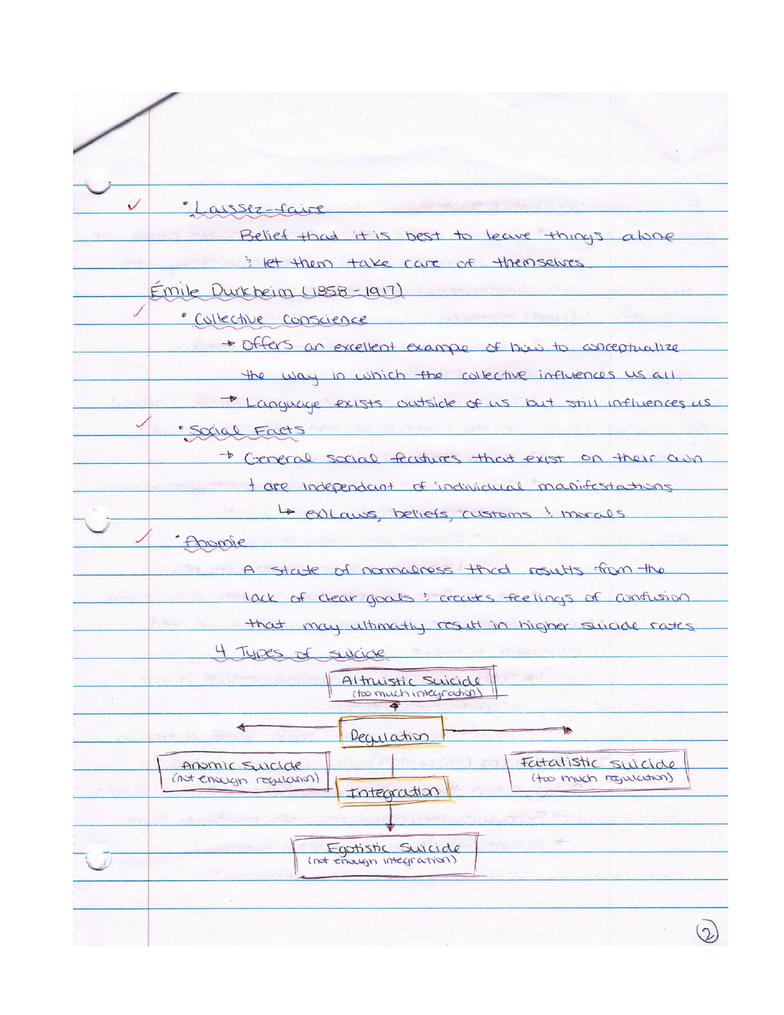 • Laissez-faire
Belief that it is best to leave things alone
& let them take care of themselves.
Émile Durkheim (1858-1917)
• Collective conscience
→ Offers an excellent example of how to conceptualize
the way in which the collective influences us all.
→ Language exists outside of us but still influences us
• Social Facts
→ General social features that exist on their own
& are independant of individual manifestations
↳ ex) Laws, beliefs, customs & morals
• Anomie
A state of normalness that results from the
lack of clear goals & creates feelings of confusion
that may ultimatly result in higher suicide rates.
4 Types of suicide
Altruistic Suicide
(too much integration)
Regulation
Anomic Suicide
(not enough regulation)
Fatalistic suicide
(too much regulation)
Integration
Egotistic Suicide
(not enough integration)
2